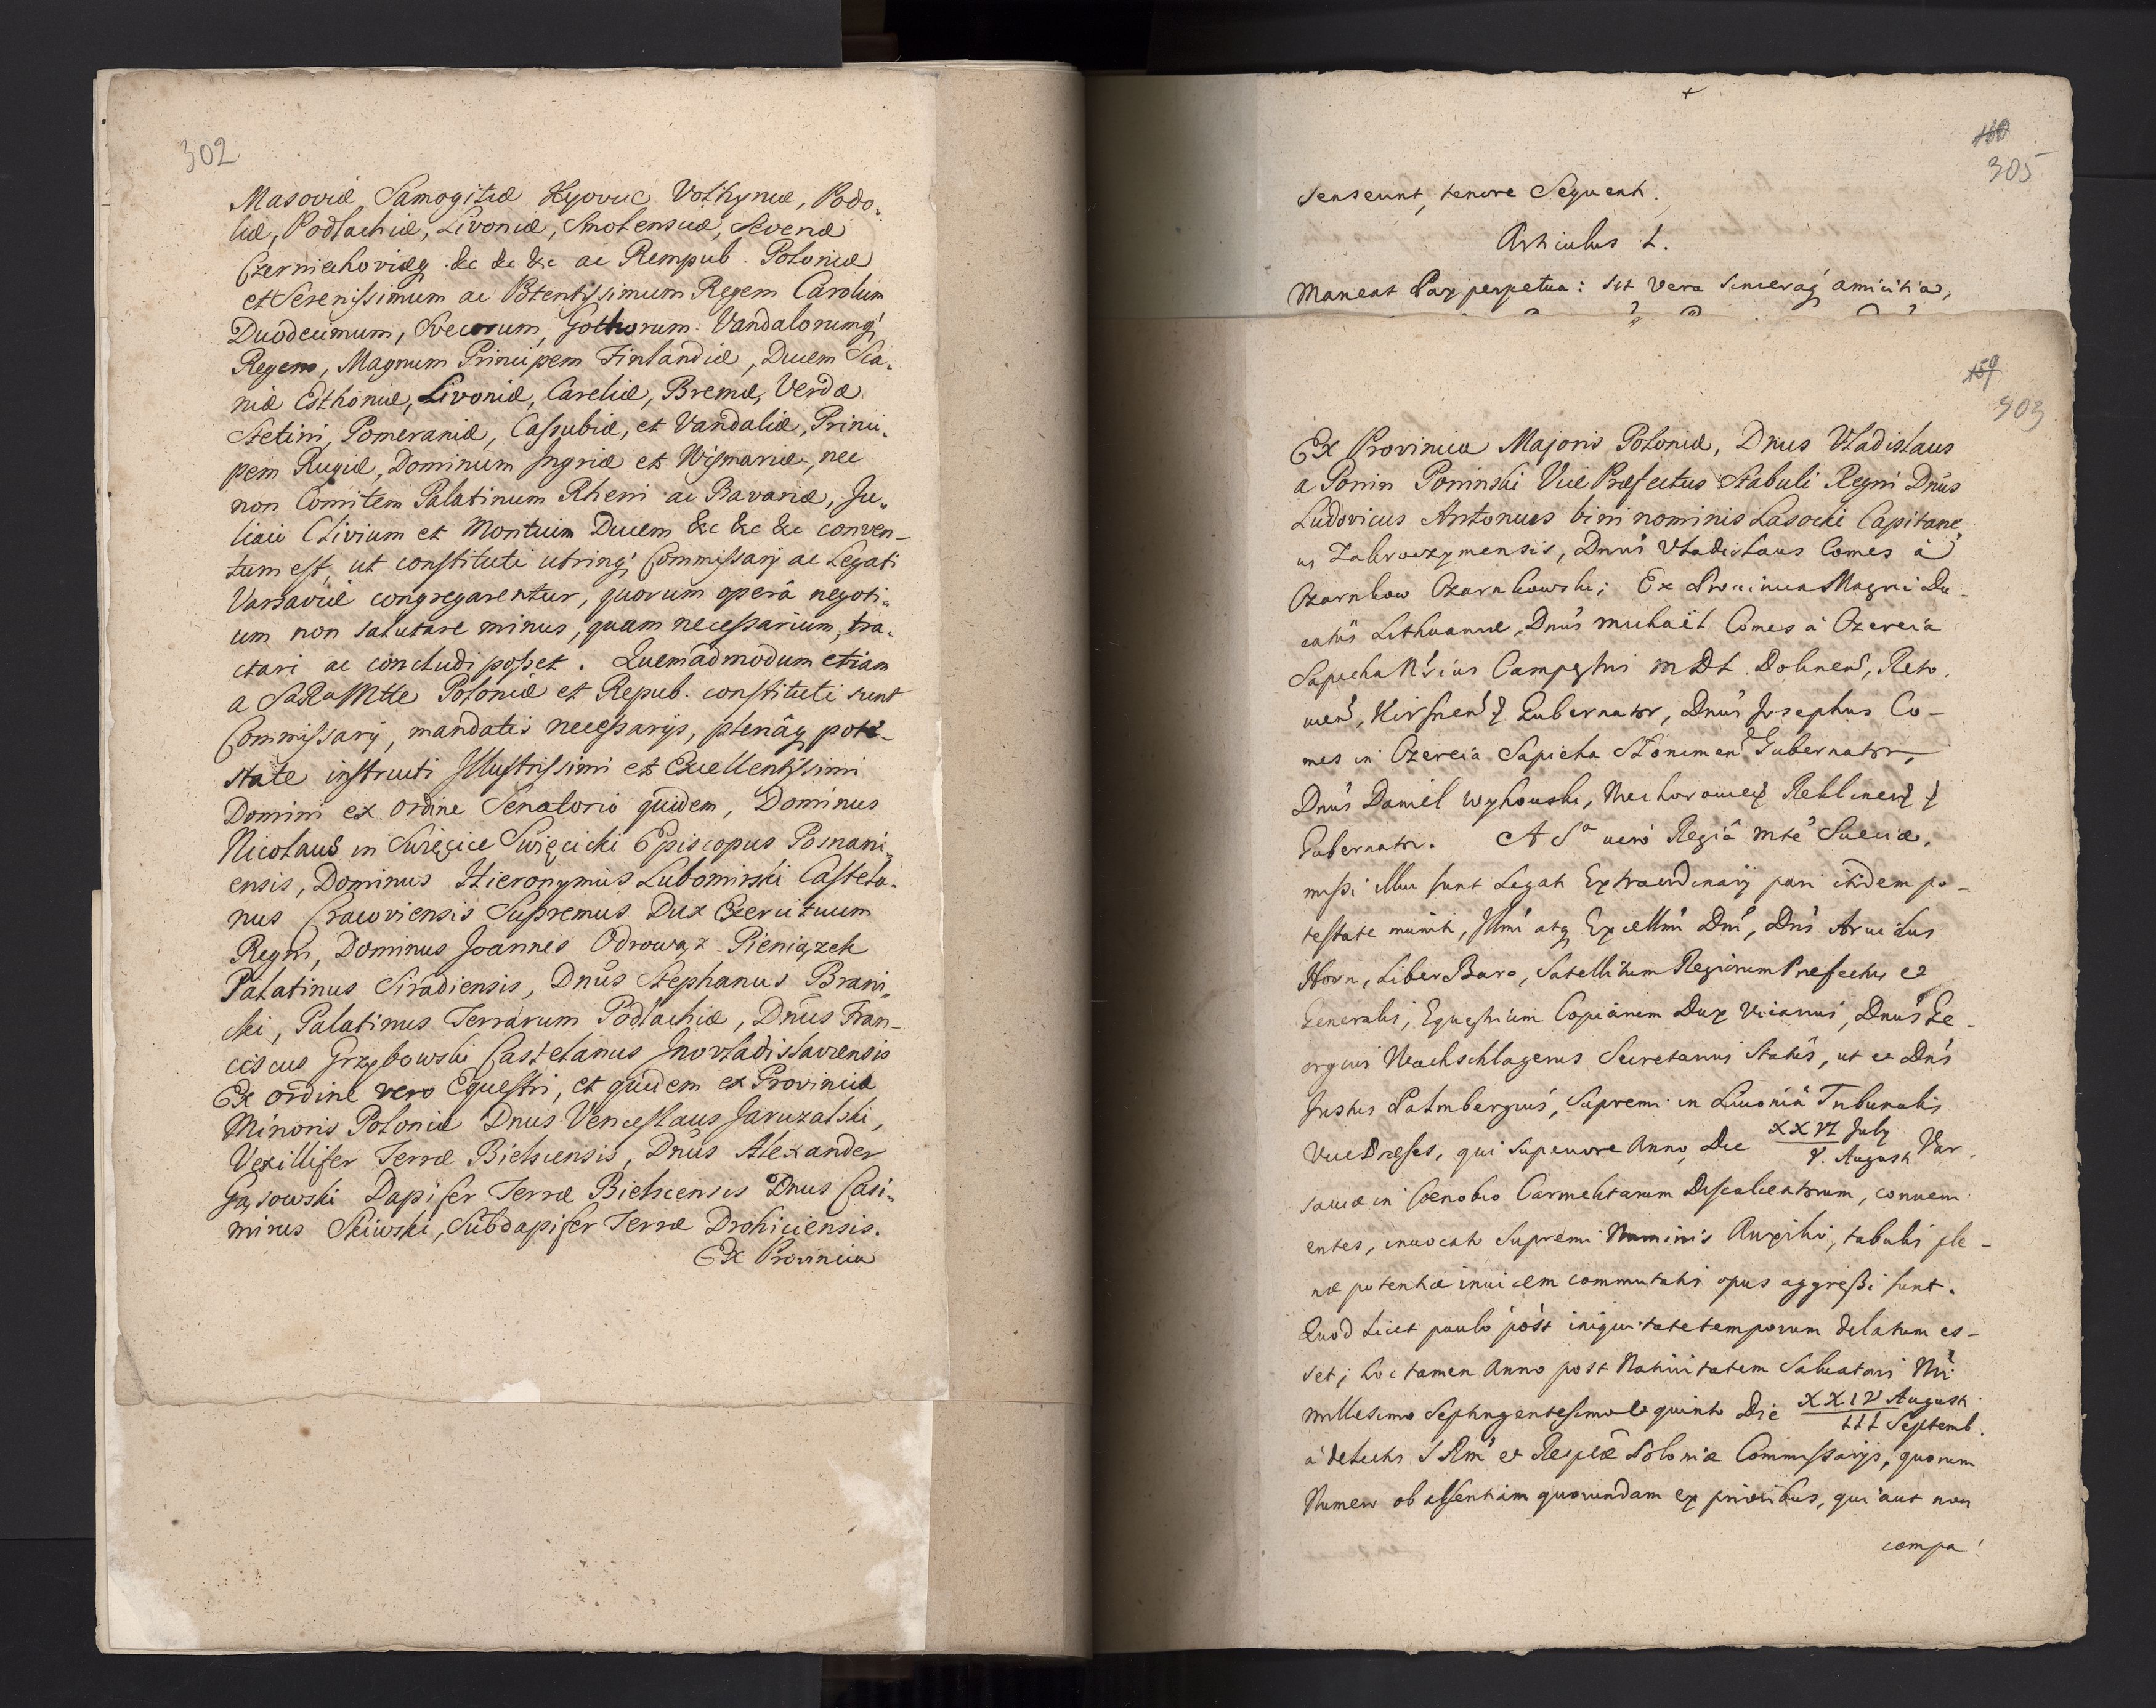 302
Masoviæ Samogitiæ Kyoviæ Volhyniæ, Podo„
liæ, Podlachiæ, Livoniæ, Smolensciæ, Severiæ
Czerniechoviæq &c &c &c ac Rempub. Poloniæ
et Serenissimum ac Potentissimum Regem Carolum
Duodecimum, Svecorum, Gothorum Vandalorumq́
Regem, Magnum Principem Finlandiæ, Ducem Sca„
niæ Esthoniæ, Livoniæ, Careliæ, Bremæ, Verdæ
Stetini, Pomeraniæ, Cassubiæ, et Vandaliæ, Princi„
pem Rugiæ, Dominum Ingriæ et Wismariæ, nec
non Comitem Palatinum Rheni ac Bavariæ, Ju„
liaci Clivium et Montium Ducem &c &c &c conven-
tum est, ut constituti utrinq́ Commissarij ac Legati
Varsaviæ congregarentur, quorum operâ negoti„
um non salutare minus, quam necessarium, tra„
ctari ac concludi posset. Quemadmodum etiam
a SaRaMtte Poloniæ et Repub. constituti sunt
Commissarij, mandatis necessarijs, plenâq pote-
state instructi Illustrissimi et Excellentissimi
Domini ex ordine Senatorio quidem, Dominus
Nicolaus in Swięcice Swięcicki Episcopus Posnani„
ensis, Dominus Hieronymus Lubomirski Castela„
nus Cracoviensis Supremus Dux Exercituum
Regni, Dominus Joannes Odrowąz Pieniązek
Palatinus Siradiensis, Dnus Stephanus Brani„
cki, Palatinus Terrarum Podlachiæ, Dnus Fran-
ciscus Grzybowski Castelanus Inovladislaviensis
Ex ordine vero Equestri, et quidem ex Provincia
Minoris Poloniæ Dnus Venceslaus Jaruzalski,
Vexillifer Terræ Bielscensis, Dnus Alexander
Dapifer Terræ Bielscensis Dnus Casi„
mirus Skiwski, Subdapifer Terræ Drohiciensis.
Ex Provincia
160
305
senserunt, tenore Sequenti.
Articulus I.
Maneat Pax perpetua: sit vera sinceraq́ amicitia,
159
303
Ex Provincia Majoris Poloniæ, Dnus Vladislaus
a Ponin Poninski Vice Præfectus Stabuli Regni Dnus
Ludovicus Antonius bini nominis Lasocki Capitane
us Zakroczymensis, Dnus Vladislaus Comes à
Czarnkow Czarnkowski; Ex Provincia Magni Du-
catûs Lithuaniæ, Dnus Michaël Comes à Czereia
Sapieha Campestris MDL. Reto.
Gubernator, Dnus Josephus Co-
mes in Czereia Sapieha Slonimens Gubernator,
Dnus Daniel Wyhowski,
Gubernator. A Sa vero Regiâ Mte Sueciæ.
missi illuc sunt Legati Extraordinarij pari itidem po-
testate muniti, Illmi atq Excellmi Dni, Dns Arvidus
Horn, Liber Baro, Satellitum Regiorum Præfectus et
Generalis, Equestrium Copiarum Dux Vicarius, Dnus Ge-
orgius Wachschlagerus Secretarius Statûs, ut et Dns
Justus Palmbergius, Supremi in Livonia Tribunalis
Vice Præses, qui superiore Anno, Die XXVI July
V. Augusti Var.
saviæ in Coenobio Carmelitarum Discalceatorum, conveni
entes, invocato Supremi Numinis Auxilio, tabulis ple-
næ potentiæ invicem commutatis opus aggressi sunt.
Quod licet paulo pòst iniquitate temporum dilatum es-
set; hoc tamen Anno post Nativitatem Salvatoris Nri
millesimo Septingentesimo et quinto Die XXIV Augusti
III Septemb.
a delectis SRm et Reiplæ Poloniæ Commissarijs, quorum
Numero ob absentiam quorundam ex prioribus, qui aut non
compa